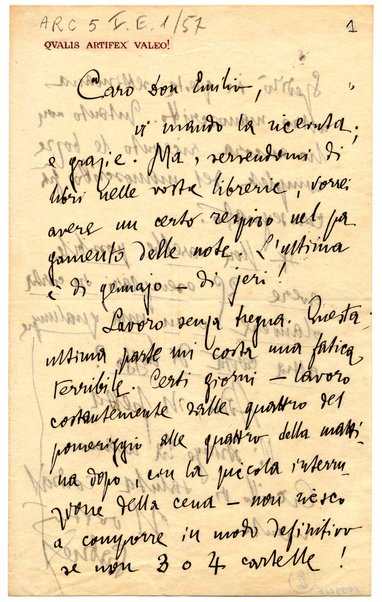 ARC 5 I. E. 1/57
1
QVALIS ARTIFEX VALEO!
Caro Don Emilio,
vi mando la ricevuta;
e grazie. Ma, servendomi di
libri nelle vostre librerie, vorrei
avere un certo respiro nel pa
gamento delle note. L'ultima
è di gennajo – di jeri!
Lavoro senza tregua. Questa
ultima parte mi costa una fatica
terribile. Certi giorni – lavoro
costantemente dalle quattro del
pomeriggio alle quattro della matti
na dopo, con la piccola interru
zione della cena – non riesco
a comporre in modo definitivo
se non 3 o 4 cartelle!